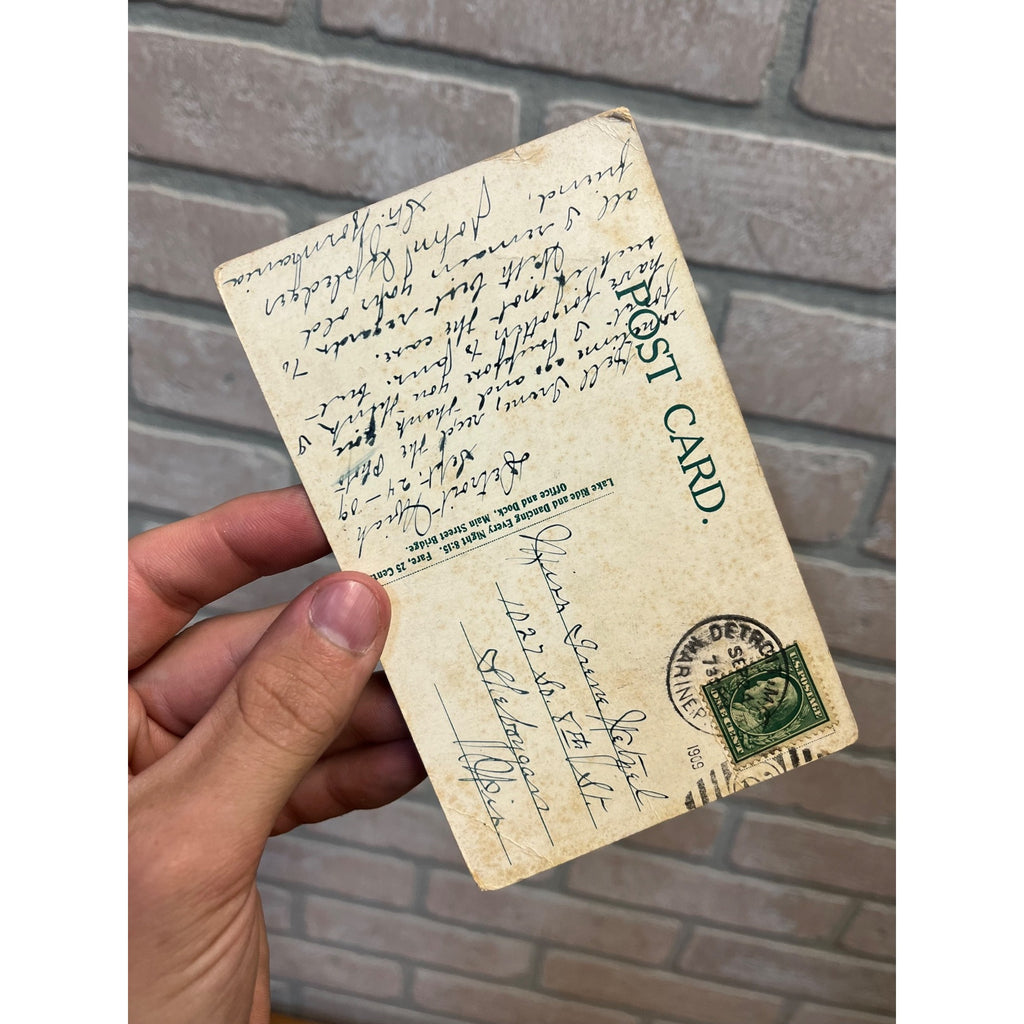 POST CARD.
Detroit Mich
Sept. 24-09
Well Irene, recd the Photo
sometime ago and thank you
for it. I suppose you think I
have forgotten to but
such is not the case.
With best regards to
all I remain your old
friend,
John
Str.
Lake Ride and Dancing Every Night 8:15. Fare, 25 Cent
Office and Dock, Main Street Bridge.
Miss Irene Hetzel
1027 So. 8th St
Sheboygan
Wis
DETRO
SE
MARINER
1909
U.S. POSTAGE
ONE CENT